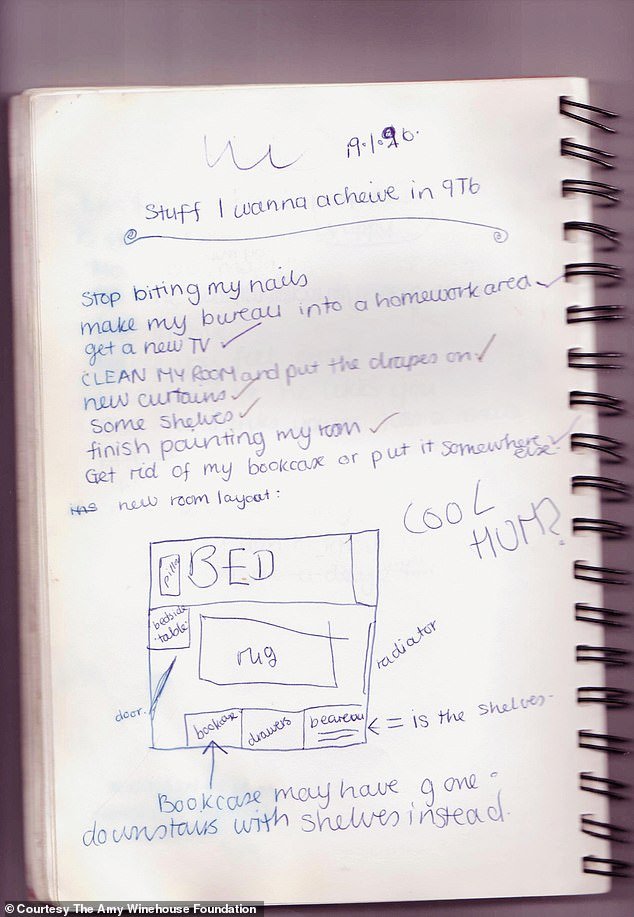 19.1.96.
Stuff I wanna acheive in 9T6
Stop biting my nails
make my bureau into a homework area
get a new TV
CLEAN MY ROOM and put the drapes on
new curtains
Some shelves
finish painting my room
Get rid of my bookcase or put it somewhere
else.
new room layout:
COOL
HUH?
pillow
BED
bedside
table
rug
radiator
door.
bookcase
drawers
beareau
= is the shelves.
Bookcase may have gone
downstairs with shelves instead.
© Courtesy The Amy Winehouse Foundation